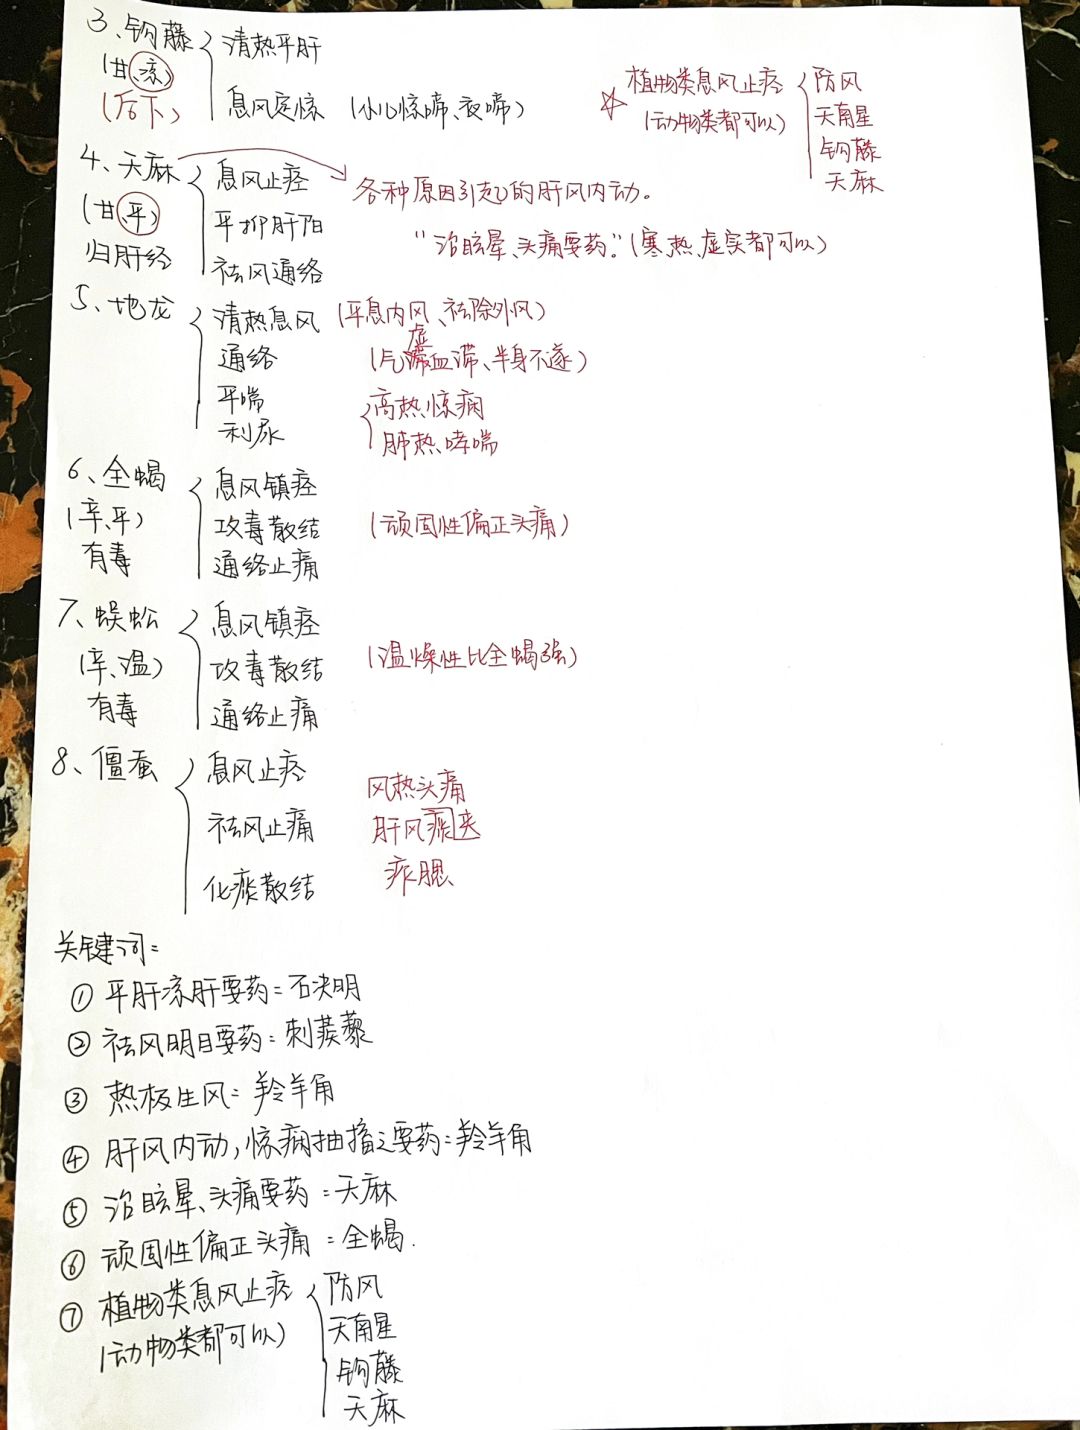 3、钩藤 清热平肝
(甘、凉)
(后下) 息风定惊 (小儿惊啼、夜啼)
☆ 植物类息风止痉 防风
(动物类都可以) 天南星
钩藤
天麻
4、天麻 息风止痉 各种原因引起的肝风内动。
(甘、平) 平抑肝阳 “治眩晕、头痛要药。”(寒、热、虚实都可以)
归肝经 祛风通络
5、地龙 清热息风 (平息内风、祛除外风)
通络 (气虚血滞、半身不遂)
平喘 高热惊痫
利尿 肺热哮喘
6、全蝎 息风镇痉
(辛、平) 攻毒散结 (顽固性偏正头痛)
有毒 通络止痛
7、蜈蚣 息风镇痉
(辛、温) 攻毒散结 (温燥性比全蝎强)
有毒 通络止痛
8、僵蚕 息风止痉 风热头痛
祛风止痛 肝风痰夹
化痰散结 痄腮
关键词:
① 平肝凉肝要药:石决明
② 祛风明目要药:刺蒺藜
③ 热极生风:羚羊角
④ 肝风内动,惊痫抽搐之要药:羚羊角
⑤ 治眩晕、头痛要药:天麻
⑥ 顽固性偏正头痛:全蝎.
⑦ 植物类息风止痉 防风
(动物类都可以) 天南星
钩藤
天麻